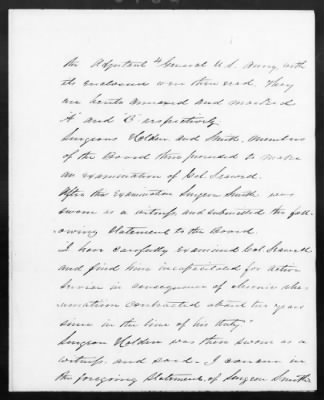 the Adjutant General U.S. Army, with
its enclosure were then read. They
are hereto annexed and marked
"A" and "B" respectively.
Surgeons Holden and Smith, members
of the Board then proceeded to make
an examination of Col Seawell.
After the examination Surgeon Smith was
sworn as a witness and submitted the foll-
owing statement to the Board.
"I have carefully examined Col Seawell
and find him incapacitated for active
service in consequence of chronic rhe-
umatism contracted about ten years
since in the line of his duty."
Surgeon Holden was then sworn as a
witness and said - I concur in
the foregoing statement of Surgeon Smith's